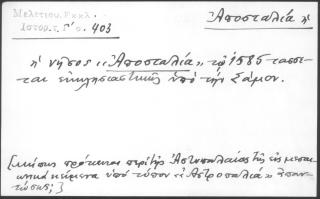 Μελετίου, Εκκλ.
Ἱστορ. τ. Γ' σ. 403
Ἀποσταλία ἡ
ἡ νῆσος «Ἀποσταλία» τῷ 1585 τάσσε-
ται ἐκκλησιαστικῶς ὑπὸ τὴν Σάμον.
[μήπως πρόκειται περὶ τῆς Ἀστυπαλαίας τῆς εἰς μεσαι-
ωνικὰ κείμενα ὑπὸ τύπον «Ἀστροπαλιά» ἀπαν-
τώσης;]